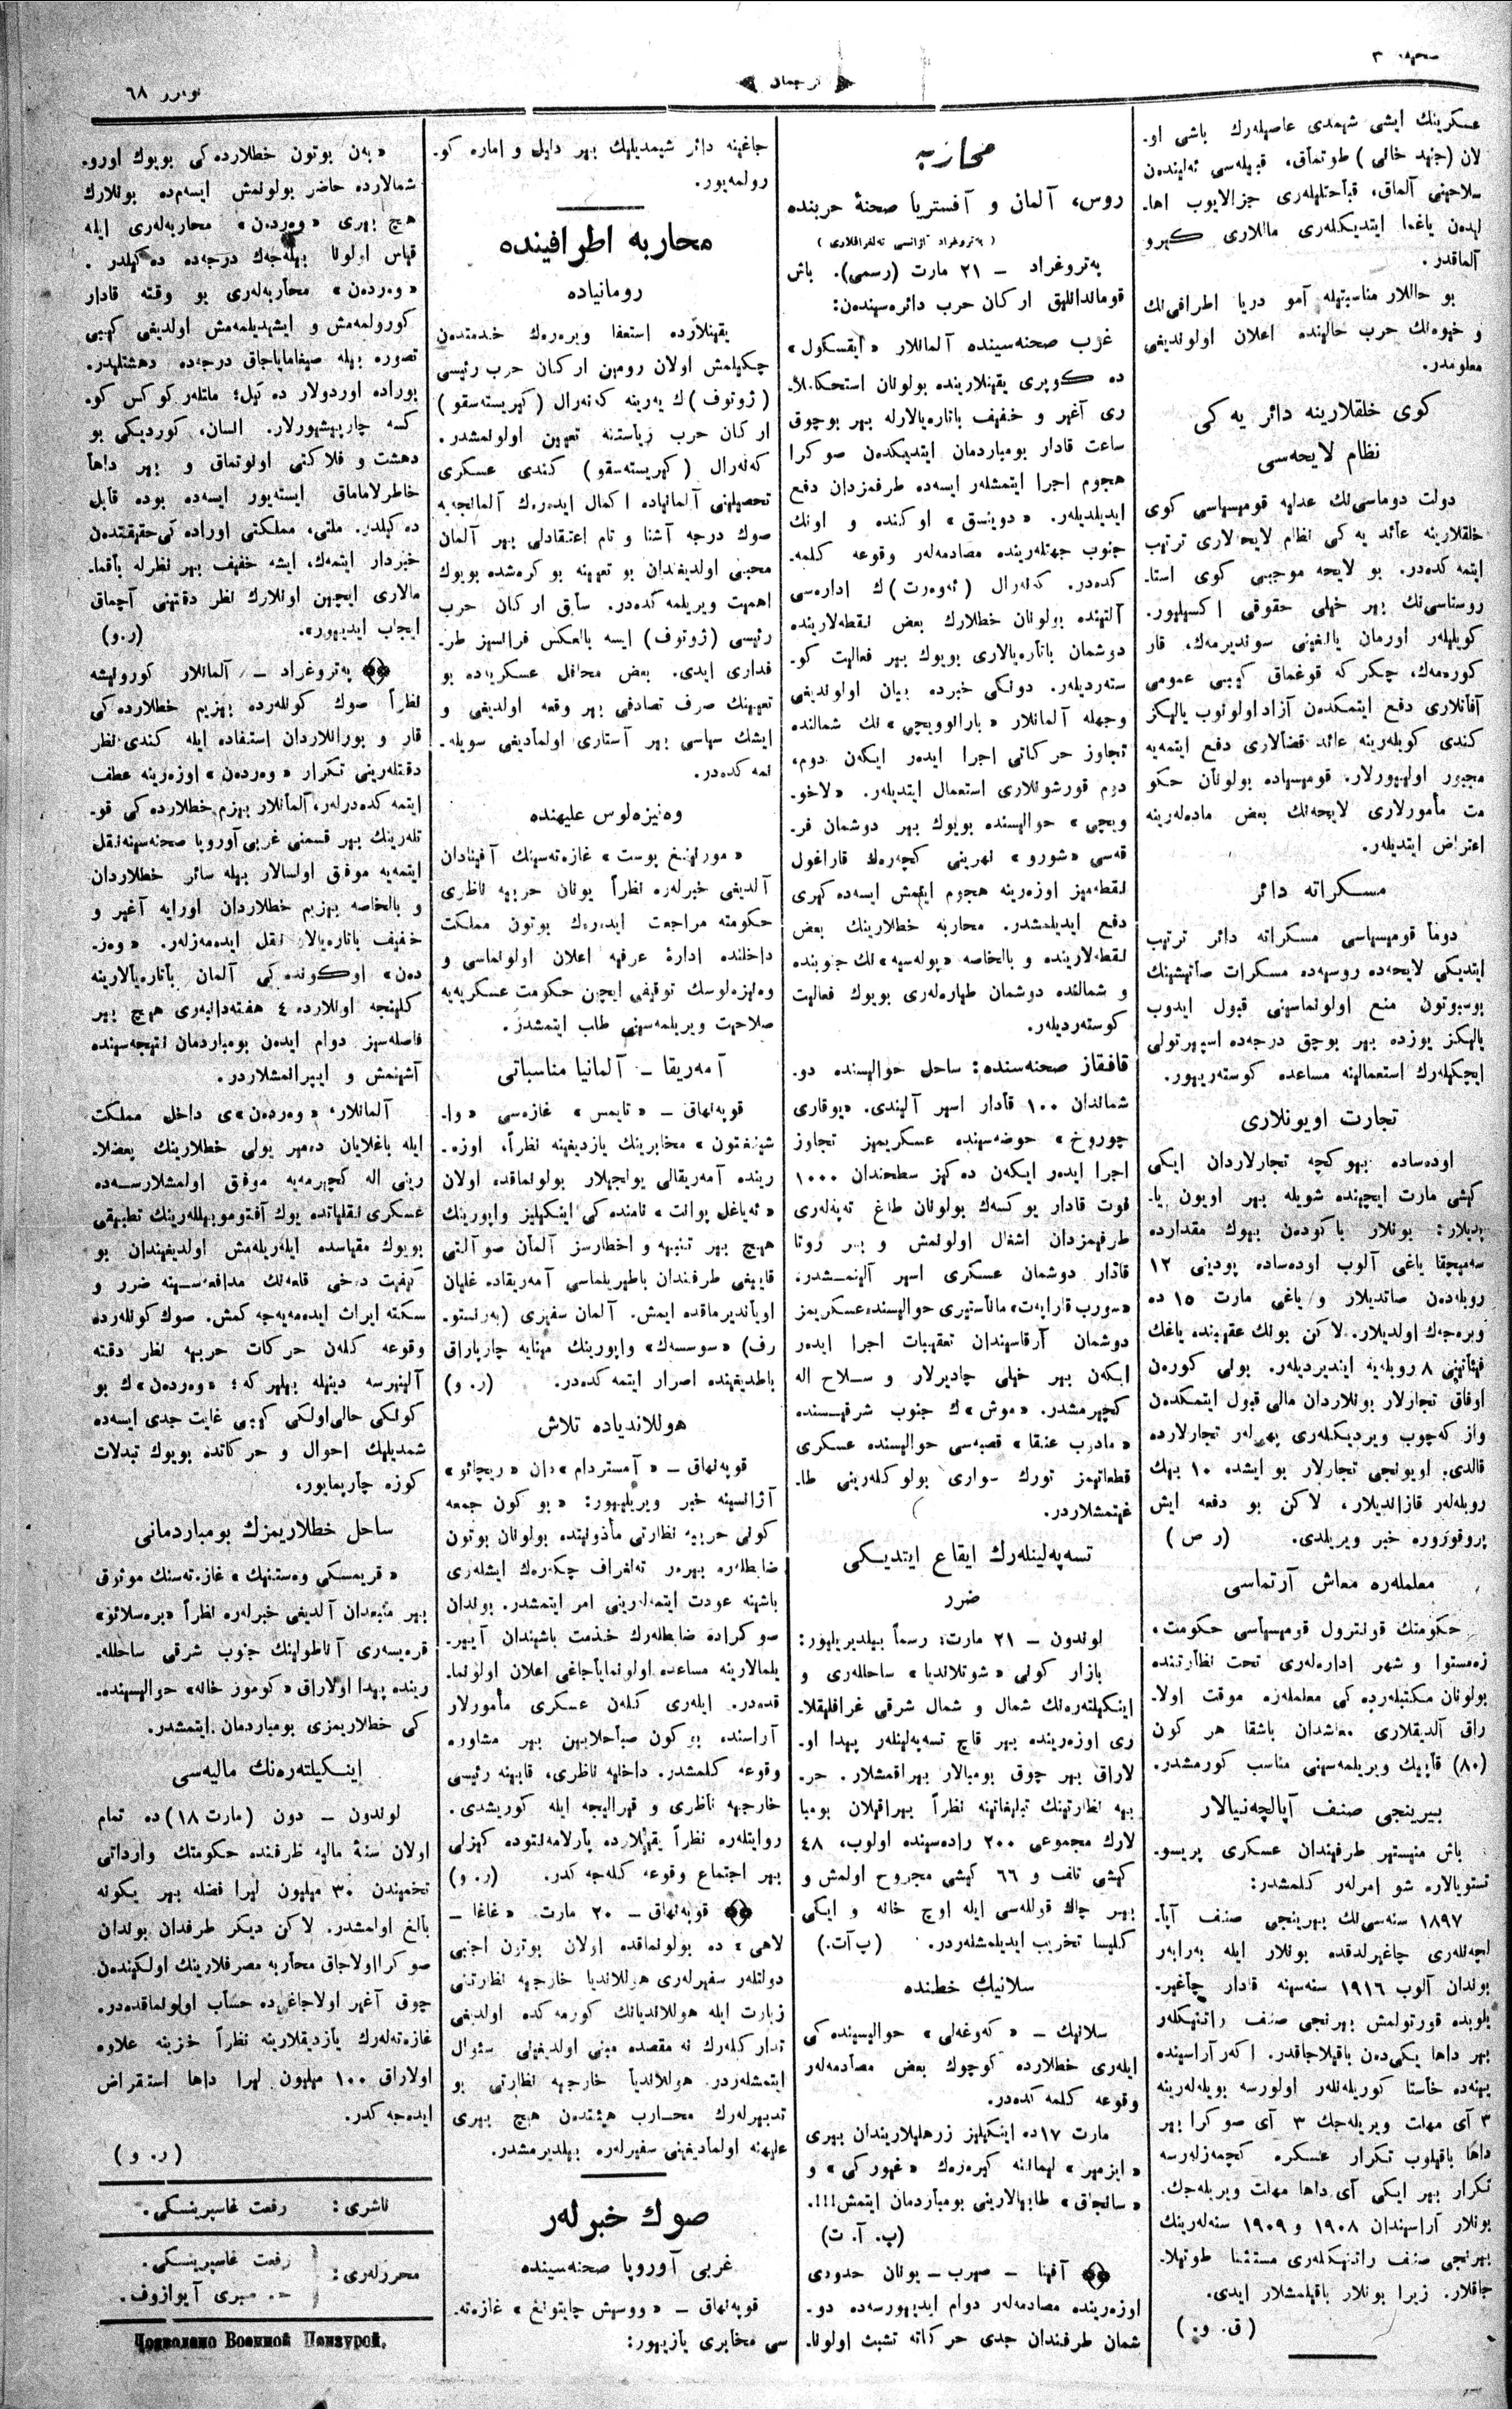 صحیفه ٣
ترجمان
نومرر ٦٨
عسكرینك ایشی شیمدی عاصیلەرك باشی او-
لان (جنید خانی) طوتماق، قبیلەسی ئەلیندەن
سلاحینی آلماق، قباحتلیلەری جزالایوب اها-
لیدەن یاغما ایتدیكلەری ماللاری كیرو
آلماقدر.
بو حاللار مناسبتیلە آمو دریا اطرافی‌نك
و خیوەنك حرب حالیندە اعلان اولوندیغی
معلومدر.
كوی خلقلارینە دائر یە كی
نظام لایحەسی
دولت دوماسی‌نك عدلیە قومیسیاسی كوی
خلقلارینە عائد یە كی نظام لایحەلاری ترتیب
ایتمە كدەدر. بو لایحە موجبی كوی استا-
روستاسی‌نك بیر خیلی حقوقی اكسیلیور.
كویلیلەر اورمان یانغینی سوندیرمەك، قار
كورەمەك، چكركە قوغماق كیبی عمومی
آفاتلاری دفع ایتمكدەن آزاد اولونوب یالیكز
كندی كویلەرینە عائد قضالاری دفع ایتمەیە
مجبور اولییورلار. قومیسیادە بولونان حكو
مت مأمورلاری لایحەنك بعض مادەلەرینە
اعتراض ایتدیلەر.
مسكراتە دائر
دوما قومیسیاسی مسكراتە دائر ترتیب
ایتدیكی لایحەدە روسیەدە مسكرات صاتیشینك
بوسبوتون منع اولونماسینی قبول ایدوب
یالیكز یوزدە بیر بوچق درجەدە اسپیرتولی
ایچكیلەرك استعمالینە مساعدە كوستەرییور.
تجارت اویونلاری
اودەسادە بیوكچە تجارلاردان ایكی
كیشی مارت ایچیندە شویلە بیر اویون یا-
پدیلار: بونلار باكودەن بیوك مقداردە
سەمیچقا یاغی آلوب اودەسادە پودینی ١٢
روبلەدەن صاتدیلار و یاغی مارت ١٥ دە
ویرەجەك اولدیلار. لاكن بونك عقبیندە یاغك
فیئاتینی ٨ روبلەیە ایندیردیلەر. بونی كورەن
اوفاق تجارلار بونلاردان مالی قبول ایتمكدەن
واز كەچوب ویردیكلەری پەیلەر تجارلاردە
قالدی. اویونجی تجارلار بو ایشدە ١٠ بیك
روبلەلەر قازاندیلار، لاكن بو دفعە ایش
پروقورورە خبر ویریلدی. (ر ص)
معلملەرە معاش آرتماسی
حكومتك قونترول قومیسیاسی حكومت،
زەمستوا و شهر ادارەلەری تحت نظارتندە
بولونان مكتبلەردە كی معلملەرە موقت اولا-
راق آلدیقلاری معاشدان باشقا هر كون
(٨٠) قاپیك ویریلمەسینی مناسب كورمشدر.
بیرینجی صنف آپالچەنیالار
باش مینستیر طرفندان عسكری پریسو-
تستویالارە شو امرلەر كلمشدر:
١٨٩٧ سنەسی‌نك بیرینجی صنف آپا-
لچەنلەری چاغیرلدقدە بونلار ایلە بەرابەر
بوندان آلوب ١٩١٦ سنەسینە قادار چاغیر-
یلوبدە قورتولمش بیرنجی صنف راتنیكلەر
بیر داها یكی‌دەن باقیلاجاقدر. اكەر آراسیندە
ینەدە خاستا كوریلەنلەر اولورسە بویلەلەرینە
٣ آی مهلت ویریلەجك ٣ آی صوكرا بیر
داها باقیلوب تكرار عسكرە كچمەزلەرسە
تكرار بیر ایكی آی داها مهلت ویریلەجك.
بونلار آراسیندان ١٩٠٨ و ١٩٠٩ سنەلەرینك
بیرنجی صنف راتنیكلەری مستثنا طوتیلا-
جاقلار. زیرا بونلار باقیلمشلار ایدی.
(ق. و.)
محاربە
روس، آلمان و آفستریا صحنۀ حربندە
(پەتروغراد آژانسی تەلغرافلاری)
پەتروغراد — ٢١ مارت (رسمی). باش
قوماندانلیق اركان حرب دائرەسیندەن:
غرب صحنەسیندە آلمانلار «ایقسكول»
دە كوپری یقینلاریندە بولونان استحكاملا-
ری آغیر و خفیف باتارەیالارلە بیر بوچوق
ساعت قادار بومباردمان ایتدیكدەن صوكرا
هجوم اجرا ایتمشلەر ایسەدە طرفمزدان دفع
ایدیلدیلەر. «دوینسق» اوكندە و اونك
جنوب جهتلەریندە مصادمەلەر وقوعە كلمە-
كدەدر. كەنەرال (ئەوەرت)ك ادارەسی
آلتیندە بولونان خطلارك بعض نقطەلاریندە
دوشمان باتارەیالاری بویوك بیر فعالیت كو-
ستەردیلەر. دونكی خبردە بیان اولوندیغی
وجهلە آلمانلار «بارانوویچی»نك شمالندە
تجاوز حركاتی اجرا ایدەر ایكەن دوم،
دوم قورشونلاری استعمال ایتدیلەر. «لاخو-
ویچی» حوالیسندە بویوك بیر دوشمان فر-
قەسی «شورو» نهرینی كچەرەك قاراغول
نقطەمیز اوزەرینە هجوم ایتمش ایسەدە كیری
دفع ایدیلمشدر. محاربە خطلارینك بعض
نقطەلاریندە و بالخاصە «پولەسیە»نك جنوبندە
و شمالندە دوشمان طیارەلەری بویوك فعالیت
كوستەردیلەر.
قافقاز صحنەسندە: ساحل حوالیسندە دو-
شماندان ١٠٠ قادار اسیر آلیندی. «یوقاری
چوروخ» حوضەسیندە عسكریمیز تجاوز
اجرا ایدەر ایكەن دەكیز سطحندان ١٠٠٠
فوت قادار یوكسەك بولونان طاغ تەپەلەری
طرفیمزدان اشغال اولونمش و بیر روتا
قادار دوشمان عسكری اسیر آلینمشدر.
«سورب قاراپەت» ماناستیری حوالیسندە عسكریمز
دوشمان آرقاسیندان تعقیبات اجرا ایدەر
ایكەن بیر خیلی چادیرلار و سلاح الە
كچیرمشدر. «موش»ك جنوب شرقیسندە
قصبەسی حوالیسندە عسكری
قطعاتیمز تورك سواری بولوكلەرینی طا-
غیتمشلاردر.
تسەپەلینلەرك ایقاع ایتدیكی
ضرر
لوندون — ٢١ مارت: رسماً بیلدیریلیور:
بازار كونی «شوتلاندیا» ساحللەری و
اینكیلتەرەنك شمال و شمال شرقی غرافلیقلا-
ری اوزەریندە بیر قاچ تسەپەلینلەر پیدا او-
لاراق بیر چوق بومبالار بیراقمشلار. حر-
بیە نظارتینك تبلیغاتینە نظراً بیراقیلان بومبا
لارك مجموعی ٢٠٠ رادەسیندە اولوب، ٤٨
كیشی تلف و ٦٦ كیشی مجروح اولمش و
بیر چاڭ قوللەسی ایلە اوچ خانە و ایكی
كلیسا تخریب ایدیلمشلەردر. (پ آ ت.)
سلانیك خطندە
سلانیك — «كەوغەلی» حوالیسیندە كی
ایلەری خطلاردە كوچوك بعض مصادمەلەر
وقوعە كلمە كدەدر.
مارت ١٧دە اینكیلیز زرهلیلاریندان بیری
«ایزمیر» لیمانینە كیرەرەك «غیوركی» و
«سانجاق» طابیالارینی بومباردمان ایتمش!!!.
(پ. آ. ت)
آفینا — صیرب — یونان حدودی
اوزەریندە مصادمەلەر دوام ایدییورسەدە دو-
شمان طرفندان جدی حركاتە تشبث اولونا-
جاغینە دائر شیمدیلیك بیر دلیل و امارە كو-
رولمەیور.
محاربە اطرافیندە
رومانیادە
یقینلاردە استعفا ویرەرەك خدمتدەن
چكیلمش اولان رومین اركان حرب رئیسی
(ژوتوف)ك یەرینە كەنەرال (كیریستەسقو)
اركان حرب ریاستنە تعیین اولونمشدر.
كەنەرال (كیریستەسقو) كندی عسكری
تحصیلینی آلمانیادە اكمال ایدەرك آلمانجەیە
صوك درجە آشنا و تام اعتقادلی بیر آلمان
محبی اولدیغندان بو تعیینە بوكرەشدە بویوك
اهمیت ویریلمە كدەدر. سابق اركان حرب
رئیسی (ژوتوف) ایسە بالعكس فرانسیز طر-
فداری ایدی. بعض محافل عسكریەدە بو
تعیینك صرف تصادفی بیر وقعە اولدیغی و
ایشك سیاسی بیر آستاری اولمادیغی سویلە-
نمە كدەدر.
وەنیزەلوس علیهندە
«مورنینغ پوست» غازەتەسینك آفینادان
آلدیغی خبرلەرە نظراً یونان حربیە ناظری
حكومتە مراجعت ایدەرەك بوتون مملكت
داخلندە ادارۀ عرفیە اعلان اولونماسی و
وەنیزەلوسك توقیفی ایچین حكومت عسكریەیە
صلاحیت ویریلمەسینی طلب ایتمشدر.
آمەریقا — آلمانیا مناسباتی
قوپەنهاق — «تایمس» غازەسی «وا-
شینغتون» مخابرینك یازدیغینە نظراً، اوزە-
ریندە آمەریقالی یولجیلار بولونماقدە اولان
«ئەیاغل پوانت» نامندە كی اینكیلیز واپورینك
هیچ بیر تنبیە و اخطارسز آلمان صو آلتی
قاییغی طرفندان باطیریلماسی آمەریقادە غلیان
اویاندیرماقدە ایمش. آلمان سفیری (بەرنستو-
رف) «سوسسەك» واپورینك مینایە چارپاراق
باطدیغیندە اصرار ایتمە كدەدر. (ر. و)
هوللاندیادە تلاش
قوپەنهاق — «آمستردام»دان «ریچائو»
آژانسینە خبر ویریلییور: «بو كون جمعە
كونی حربیە نظارتی مأذونیتدە بولونان بوتون
ضابطلەرە بیرەر تەلغراف چكەرەك ایشلەری
باشینە عودت ایتمەلەرینی امر ایتمشدر. بوندان
صوكرادە ضابطلەرك خدمت باشیندان آییر-
یلمالارینە مساعدە اولونمایاجاغی اعلان اولونما-
قدەدر. ایلەری كلەن عسكری مأمورلار
آراسندە بو كون صباحلایین بیر مشاورە
وقوعە كلمشدر. داخلیە ناظری، قابینە رئیسی
خارجیە ناظری و قیرالیچە ایلە كوریشدی.
روایتلەرە نظراً یقینلاردە پارلامەنتودە كیزلی
بیر اجتماع وقوعە كلەجە كدر. (ر. و)
قوپەنهاق — ٢٠ مارت. «غاغا —
لاهی» دە بولونماقدە اولان بوتون اجنبی
دولتلەر سفیرلەری هوللاندیا خارجیە نظارتنی
زیارت ایلە هوللاندیانك كورمە كدە اولدیغی
تداركلەرك نە مقصدە مبنی اولدیغینی سئوال
ایتمشلەردر. هوللاندیا خارجیە نظارتی بو
تدبیرلەرك محارب هیئتدەن هیچ بیری
علیهنە اولمادیغینی سفیرلەرە بیلدیرمشدر.
صوك خبرلەر
غربی آوروپا صحنەسیندە
قوپەنهاق — «ووسیش چایتونغ» غازەتە-
سی مخابری یازییور:
«بەن بوتون خطلاردە كی بویوك اورو-
شمالاردە حاضر بولونمش ایسەم‌دە بونلارك
هیچ بیری «وەردەن» محاربەلەری ایلە
قیاس اولونا بیلەجەك درجەدە دەكیلدر.
«وەردەن» محاربەلەری بو وقتە قادار
كورولمەمش و ایشیدیلمەمش اولدیغی كیبی
تصورە بیلە صیغامایاجاق درجەدە دهشتلیدر.
بورادە اوردولار دەكیل؛ ملتلەر كوكس كو-
كسە چارپیشیورلار. انسان، كوردیكی بو
دهشت و فلاكتی اونوتماق و بیر داها
خاطرلاماماق ایستەیور ایسەدە بودە قابل
دەكیلدر. ملتی، مملكتی اورادە كی حقیقتدەن
خبردار ایتمەك، ایشە خفیف بیر نظرلە باقما-
مالاری ایچین اونلارك نظر دقتینی آچماق
ایجاب ایدییور». (ر.و)
پەتروغراد — آلمانلار كورونیشە
نظراً صوك كونلەردە بیزیم خطلاردە كی
قار و بورانلاردان استفادە ایلە كندی نظر
دقتلەرینی تكرار «وەردەن» اوزەرینە عطف
ایتمە كدەدرلەر، آلمانلار بیزم خطلاردە كی قو-
تلەرینك بیر قسمنی غربی آوروپا صحنەسینە نقل
ایتمەیە موفق اولسالار بیلە سائر خطلاردان
و بالخاصە بیزیم خطلاردان اورایە آغیر و
خفیف باتارەیالار نقل ایدەمەزلەر. «وەر-
دەن» اوكوندە كی آلمان باتارەیالارینە
كلینجە اونلاردە ٤ هفتەدانبەری هیچ بیر
فاصلەسیز دوام ایدەن بومباردمان نتیجەسیندە
آشینمش و ایپرانمشلاردر.
آلمانلار، «وەردەن»ی داخل مملكت
ایلە باغلایان دەمیر یولی خطلارینك بعضلا-
رینی الە كچیرمەیە موفق اولمشلارسەدە
عسكری نقلیاتدە یوك آفتوموبیللەرینك تطبیقی
بویوك مقیاسدە ایلەریلەمش اولدیغیندان بو
كیفیت دخی قلعەنك مدافعەسینە ضرر و
سكتە ایراث ایدەمەیەجە كمش. صوك كونلەردە
وقوعە كلەن حركات حربیە نظر دقتە
آلینیرسە دینیلە بیلیر كە؛ «وەردەن»ك بو
كونكی حالی اولكی كیبی غایت جدی ایسەدە
شمدیلیك احوال و حركاتدە بویوك تبدلات
كوزە چارپمایور،
ساحل خطلاریمزك بومباردمانی
«قریمسكی وەستنیك» غازەتەسنك موثوق
بیر منبعدان آلدیغی خبرلەرە نظراً «برەسلائو»
قرەیسەری آناطولینك جنوب شرقی ساحللە-
ریندە پیدا اولاراق «كوموز خانە» حوالیسیندە-
كی خطلاریمزی بومباردمان ایتمشدر.
اینكیلتەرەنك مالیەسی
لوندون — دون (مارت ١٨)دە تمام
اولان سنۀ مالیە ظرفندە حكومتك وارداتی
تخمیندن ٣٠ میلیون لیرا فضلە بیر یكونە
بالغ اولمشدر. لاكن دیكر طرفدان بوندان
صوكرا اولاجاق محاربە مصرفلارینك اولكیندەن
چوق آغیر اولاجاغیدە حساب اولونماقدەدر.
غازەتەلەرك یازدیقلارینە نظراً خزینە علاوە
اولاراق ١٠٠ میلیون لیرا داها استقراض
ایدەجە كدر.
(ر. و)
ناشری: رفعت غاسپرینسكی.
محررلەری: رفعت غاسپرینسكی.
ح. صبری آیوازوف.
Дозволено Военной Цензурой.